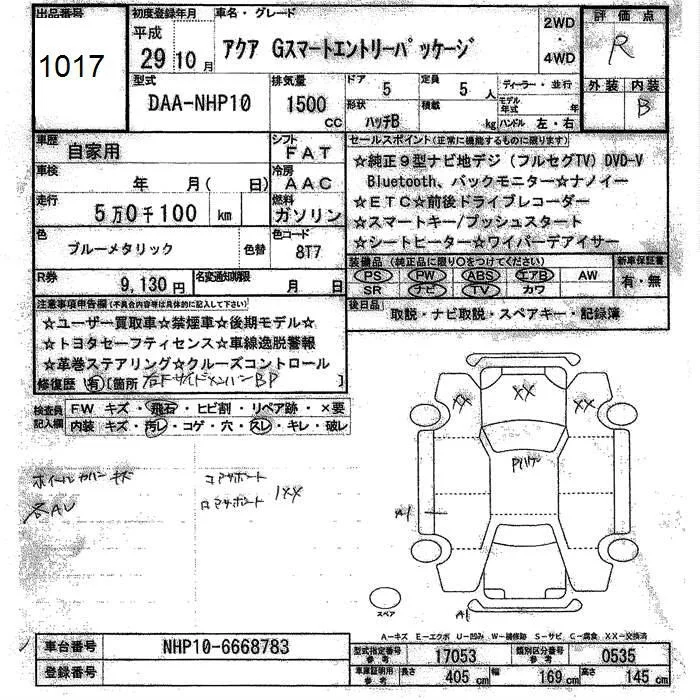 出品番号
1017
初度登録年月
平成
29 10月
車名・グレード
アクア Gスマートエントリーパッケージ
2WD
・
4WD
評価点
R
外装 内装
B
型式
DAA-NHP10
排気量
1500
CC
ドア
5
定員
5 人
形状
ハッチB
積載
kg
ディーラー・並行
モデル年式 年
ハンドル 左・右
車歴
自家用
シフト
FAT
車検
年 月( 日)
冷房
AAC
走行
5万0千100 km
燃料
ガソリン
色
ブルーメタリック
色替
色コード
8T7
R券
9,130円
名変通知期限
月 日
セールスポイント(正常に機能するものに限ります)
☆純正9型ナビ地デジ(フルセグTV) DVD-V
Bluetooth、バックモニター☆ナノイー
☆ETC☆前後ドライブレコーダー
☆スマートキー/プッシュスタート
☆シートヒーター☆ワイパーデアイサー
装備品 (純正品に限り○をつけてください)
PS PW ABS エアB AW
SR ナビ TV カワ
新車保証書
有・無
後日品
取説・ナビ取説・スペアキー・記録簿
注意事項申告欄(不具合内容等は具体的に記入して下さい)
☆ユーザー買取車☆禁煙車☆後期モデル☆
☆トヨタセーフティセンス☆車線逸脱警報
☆革巻ステアリング☆クルーズコントロール
修復歴 有 [箇所 右Fサイドメンバー BP ]
検査員記入欄
FW キズ・飛石・ヒビ割・リペア跡・×要
内装 キズ・汚レ・コゲ・穴・スレ・キレ・破レ
ホイールカバーキズ
各AU
コアサポート
ロアサポート 1XX
XX
XX
A1
A1
スペア
A-キズ E-エクボ U-凹み W-補修跡 S-サビ C-腐食 XX-交換済
車台番号
NHP10-6668783
登録番号
型式指定番号 参考
17053
類別区分番号 参考
0535
車庫証明用 参考
長さ 405cm
幅 169cm
高さ 145cm